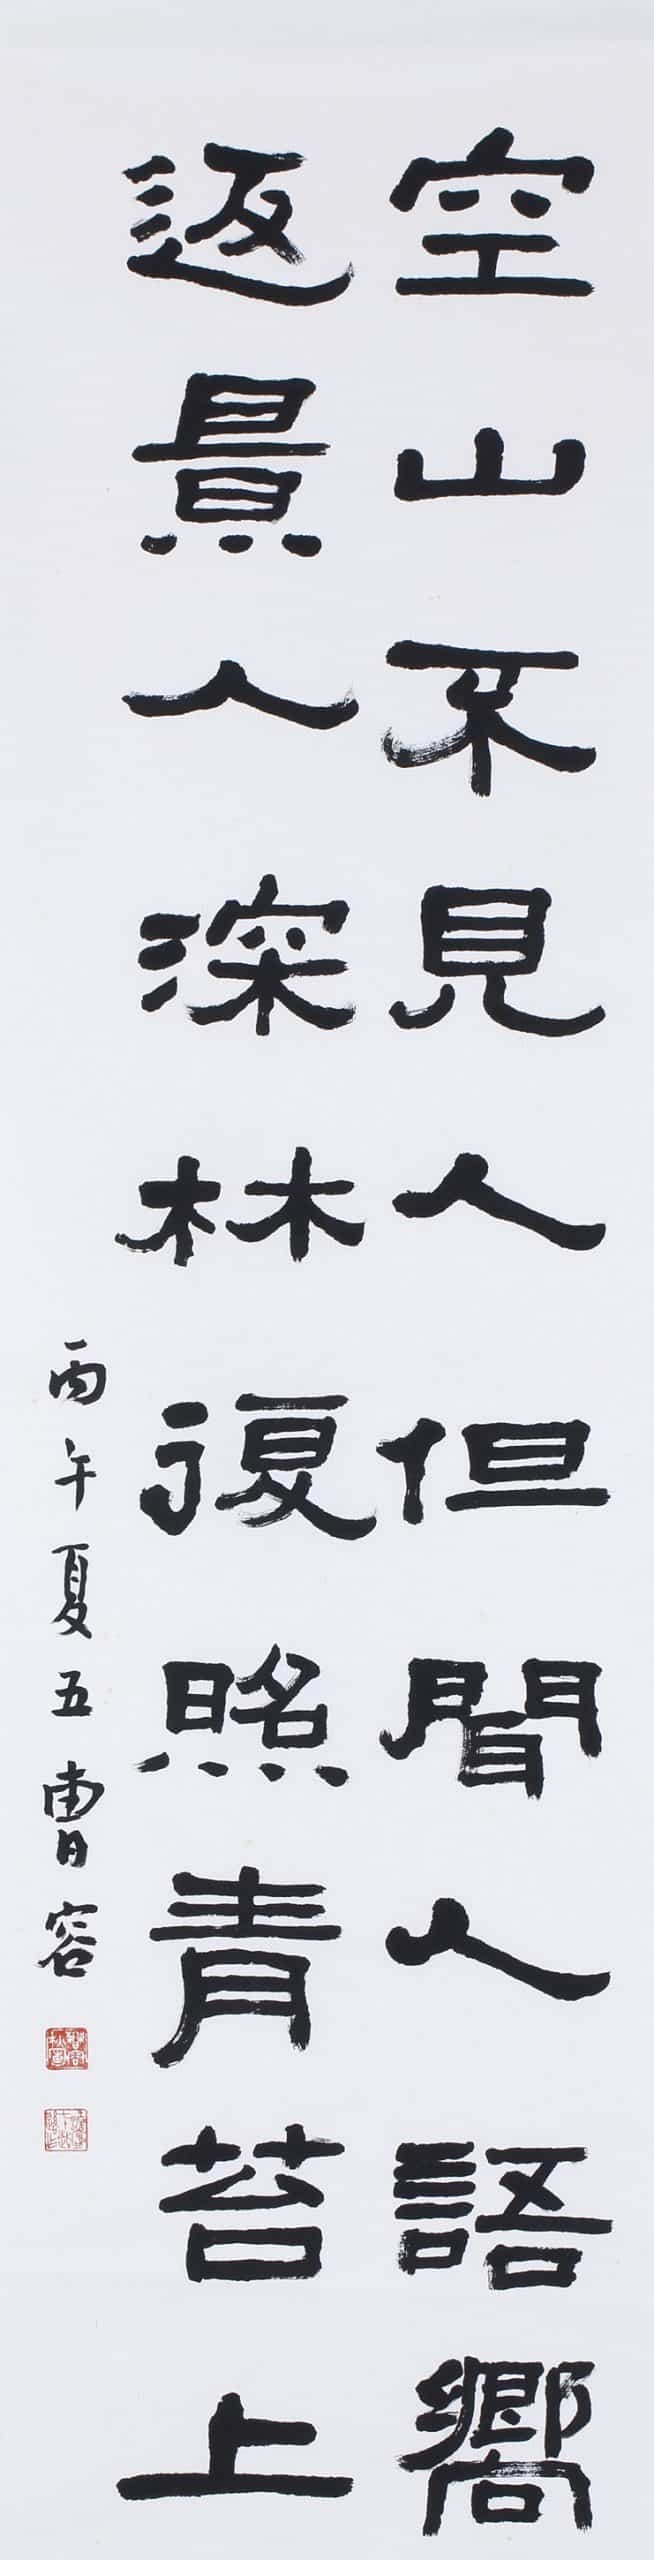 空山不見人但聞人語嚮
返景入深林復照青苔上
丙午夏五曹容
曹容秋圃